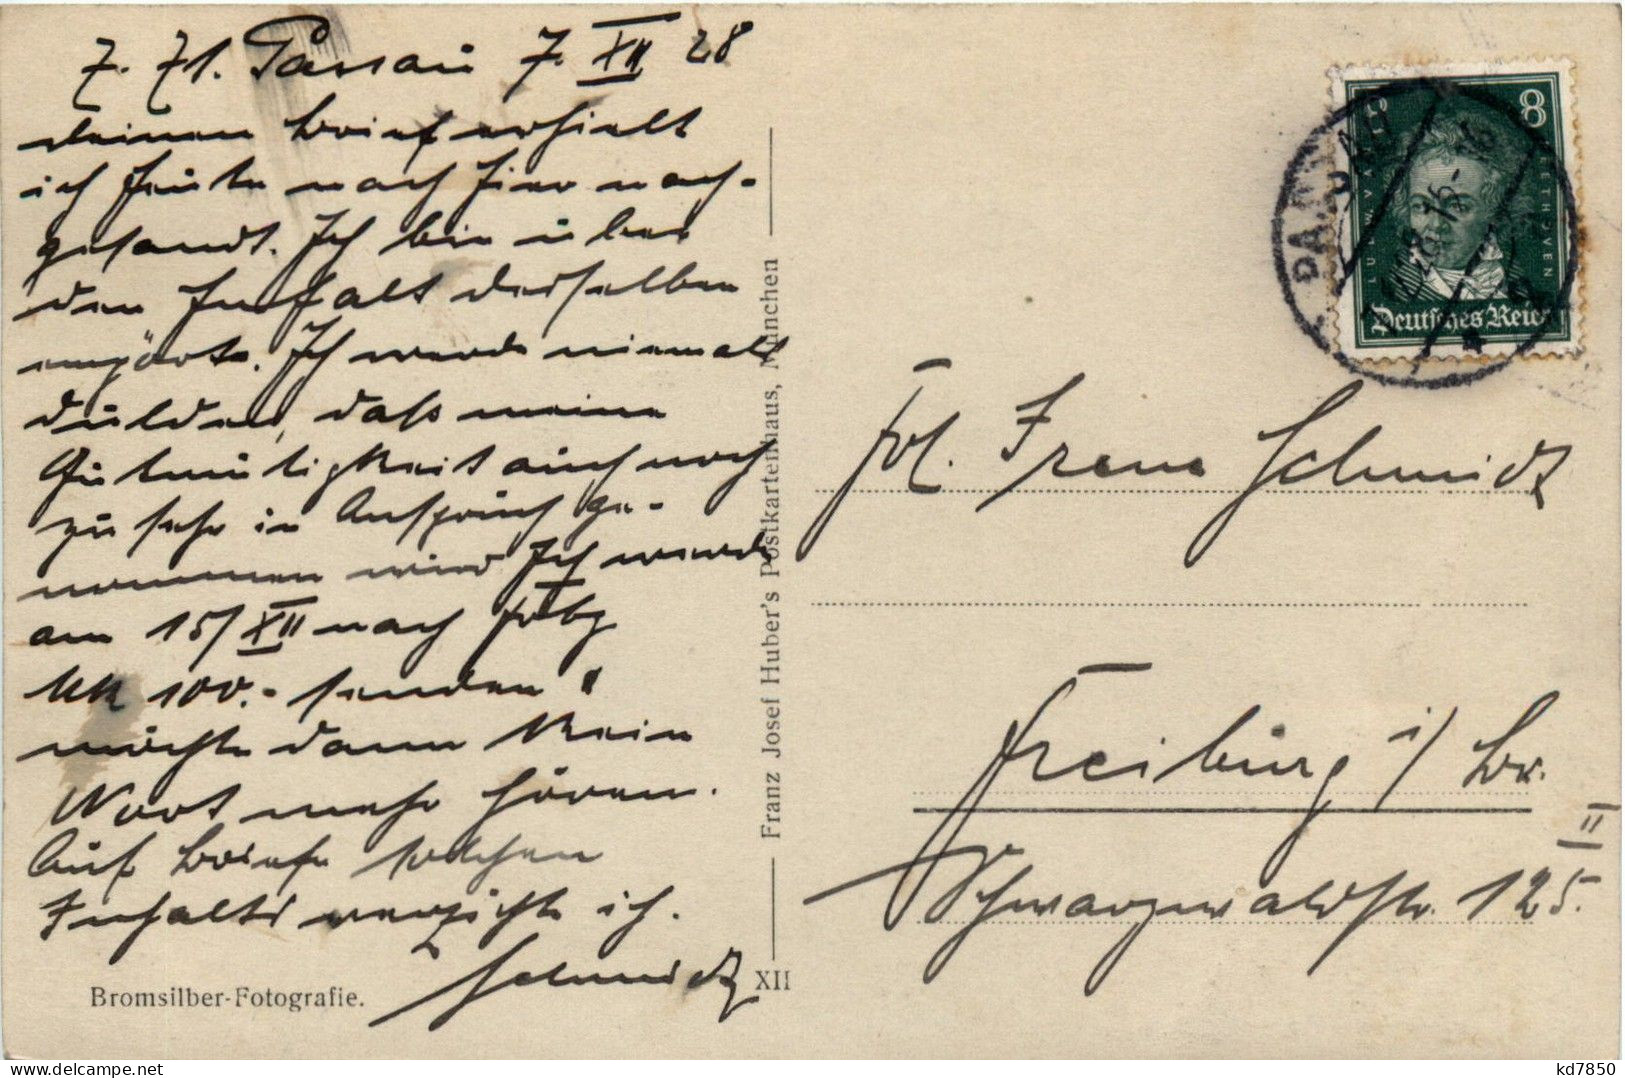 Z. Zt. Passau 7. XII 28
Deinen Brief erhielt
ich heute nach hier nach-
gesandt. Ich bin über
den Inhalt desselben
empört. Ich werde niemals
dulden, daß meine
Gutmütigkeit auch noch
zu sehr in Anspruch ge-
nommen wird Ich werde
am 15/XII nach Frbg
Mk 100.- senden &
möchte dann kein
Wort mehr hören.
Auf Briefe solchen
Inhalts verzichte ich.
Schmidt
Bromsilber-Fotografie.
Franz Josef Huber's Postkartenhaus, München
XII
8
L. V. BEETHOVEN
Deutsches Reich
PASSAU
Frl. Irene Schmidt
Freiburg i/Br.
Schwarzwaldstr. 125.
II
kd7850